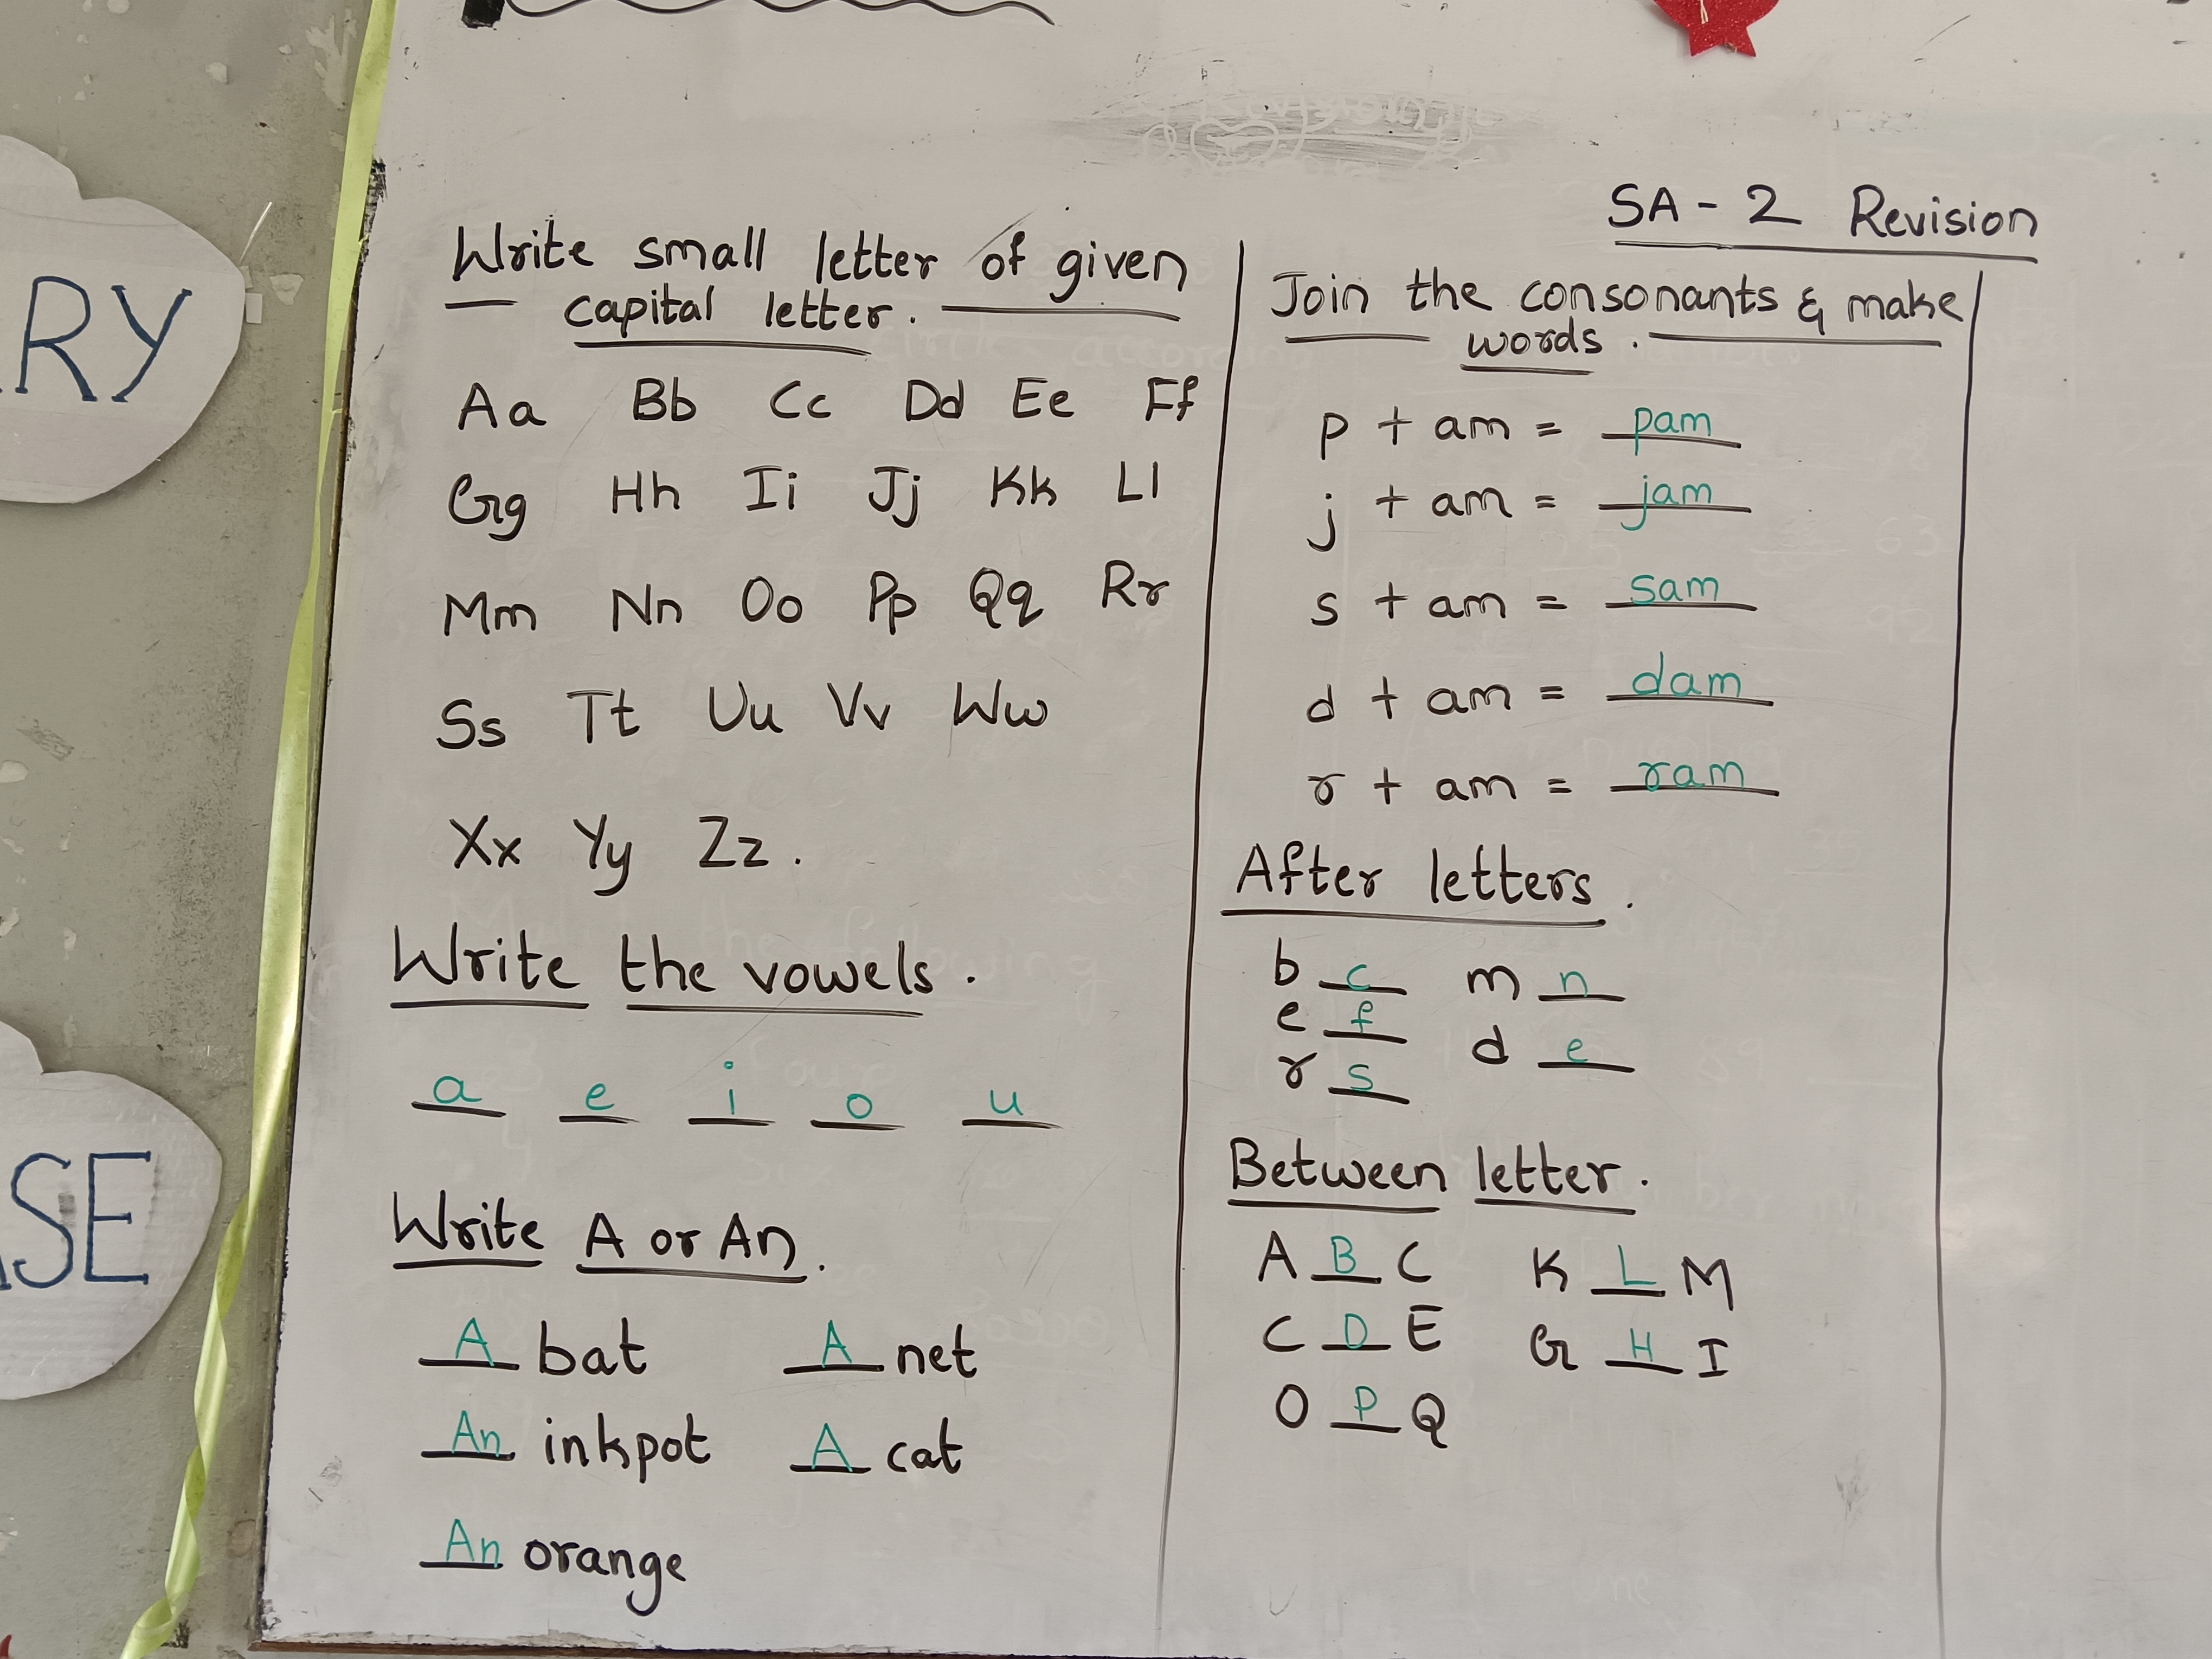 RY
SE
SA-2 Revision
Write small letter of given
capital letter.
Aa Bb Cc Dd Ee Ff
Gg Hh Ii Jj Kk Ll
Mm Nn Oo Pp Qq Rr
Ss Tt Uu Vv Ww
Xx Yy Zz.
Write the vowels.
a e i o u
Write A or An.
A bat A net
An inkpot A cat
An orange
Join the consonants & make
words.
p + am = pam
j + am = jam
s + am = sam
d + am = dam
r + am = ram
After letters.
b c m n
e f d e
r s
Between letter.
A B C K L M
C D E G H I
O P Q